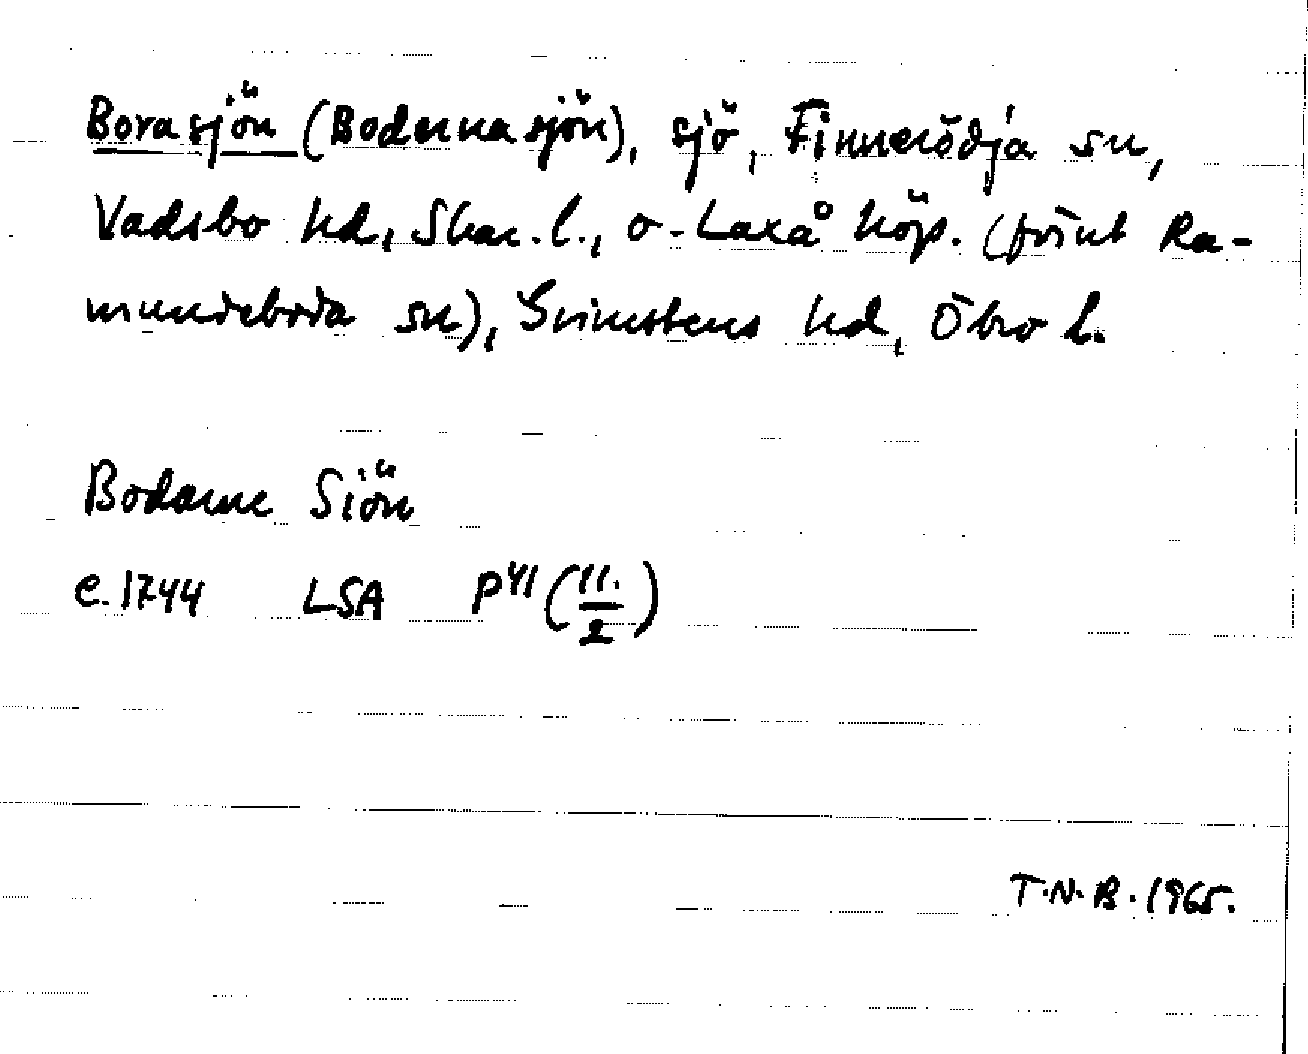 Borasjön (Bodernasjön), sjö, Finnerödja sn,
Vadsbo hd, Skar. l., o. Laxå köp. (förut Ra-
mundeboda sn), Grimstens hd, Öbro l.
Bodarne Siön
c. 1744 LSA P41 (11./2)
T.N.B. 1965.